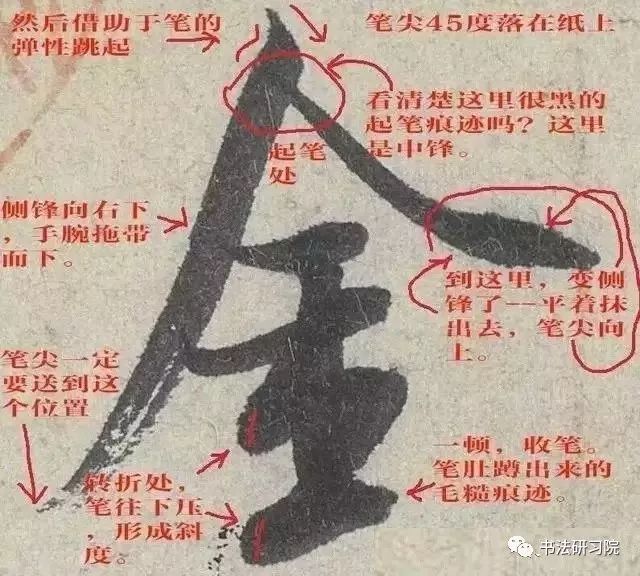 然后借助于笔的
弹性跳起
笔尖45度落在纸上
看清楚这里很黑的
起笔痕迹吗？这里
是中锋。
起笔
处
侧锋向右下
，手腕拖带
而下。
到这里，变侧
锋了--平着抹
出去，笔尖向
上。
笔尖一定
要送到这
个位置
转折处，
笔往下压
，形成斜
度。
一顿，收笔。
笔肚蹲出来的
毛糙痕迹。
金
书法研习院